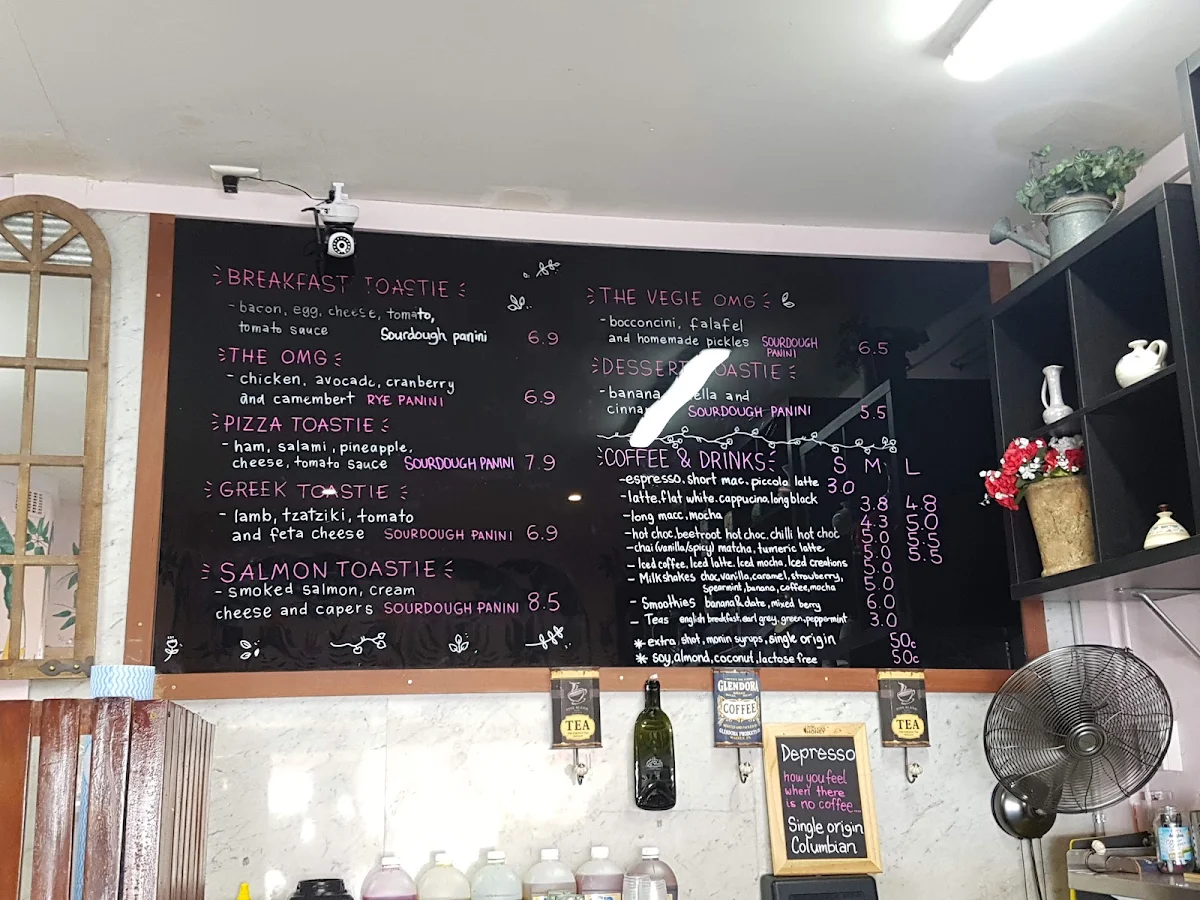 BREAKFAST TOASTIE
- bacon, egg, cheese, tomato,
tomato sauce Sourdough panini 6.9
THE OMG
- chicken, avocado, cranberry
and camembert RYE PANINI 6.9
PIZZA TOASTIE
- ham, salami, pineapple,
cheese, tomato sauce SOURDOUGH PANINI 7.9
GREEK TOASTIE
- lamb, tzatziki, tomato
and feta cheese SOURDOUGH PANINI 6.9
SALMON TOASTIE
- smoked salmon, cream
cheese and capers SOURDOUGH PANINI 8.5
THE VEGIE OMG
- bocconcini, falafel
and homemade pickles SOURDOUGH
PANINI 6.5
DESSERT TOASTIE
- banana and
SOURDOUGH PANINI 5.5
COFFEE & DRINKS S M L
- espresso, short mac, piccolo latte 3.0
- latte, flat white, cappucino, long black 3.8 4.8
- long macc, mocha 4.3 5.0
- hot choc, beetroot hot choc, chilli hot choc 5.0 5.5
- chai (vanilla/spicy) matcha, tumeric latte 5.0 5.5
- Iced coffee, Iced latte, Iced mocha, Iced creations 5.0
- Milkshakes choc, vanilla, caramel, strawberry, 5.0
Spearmint, banana, coffee, mocha
- Smoothies banana & date, mixed berry 6.0
- Teas english breakfast, earl grey, green, peppermint 3.0
* extra shot, monin syrups, single origin 50c
* soy, almond, coconut, lactose free 50c
TEA
GLENDORA
COFFEE
GLENDORA PRODUCTS
TEA
Depresso
how you feel
when there
is no coffee....
Single origin
Columbian